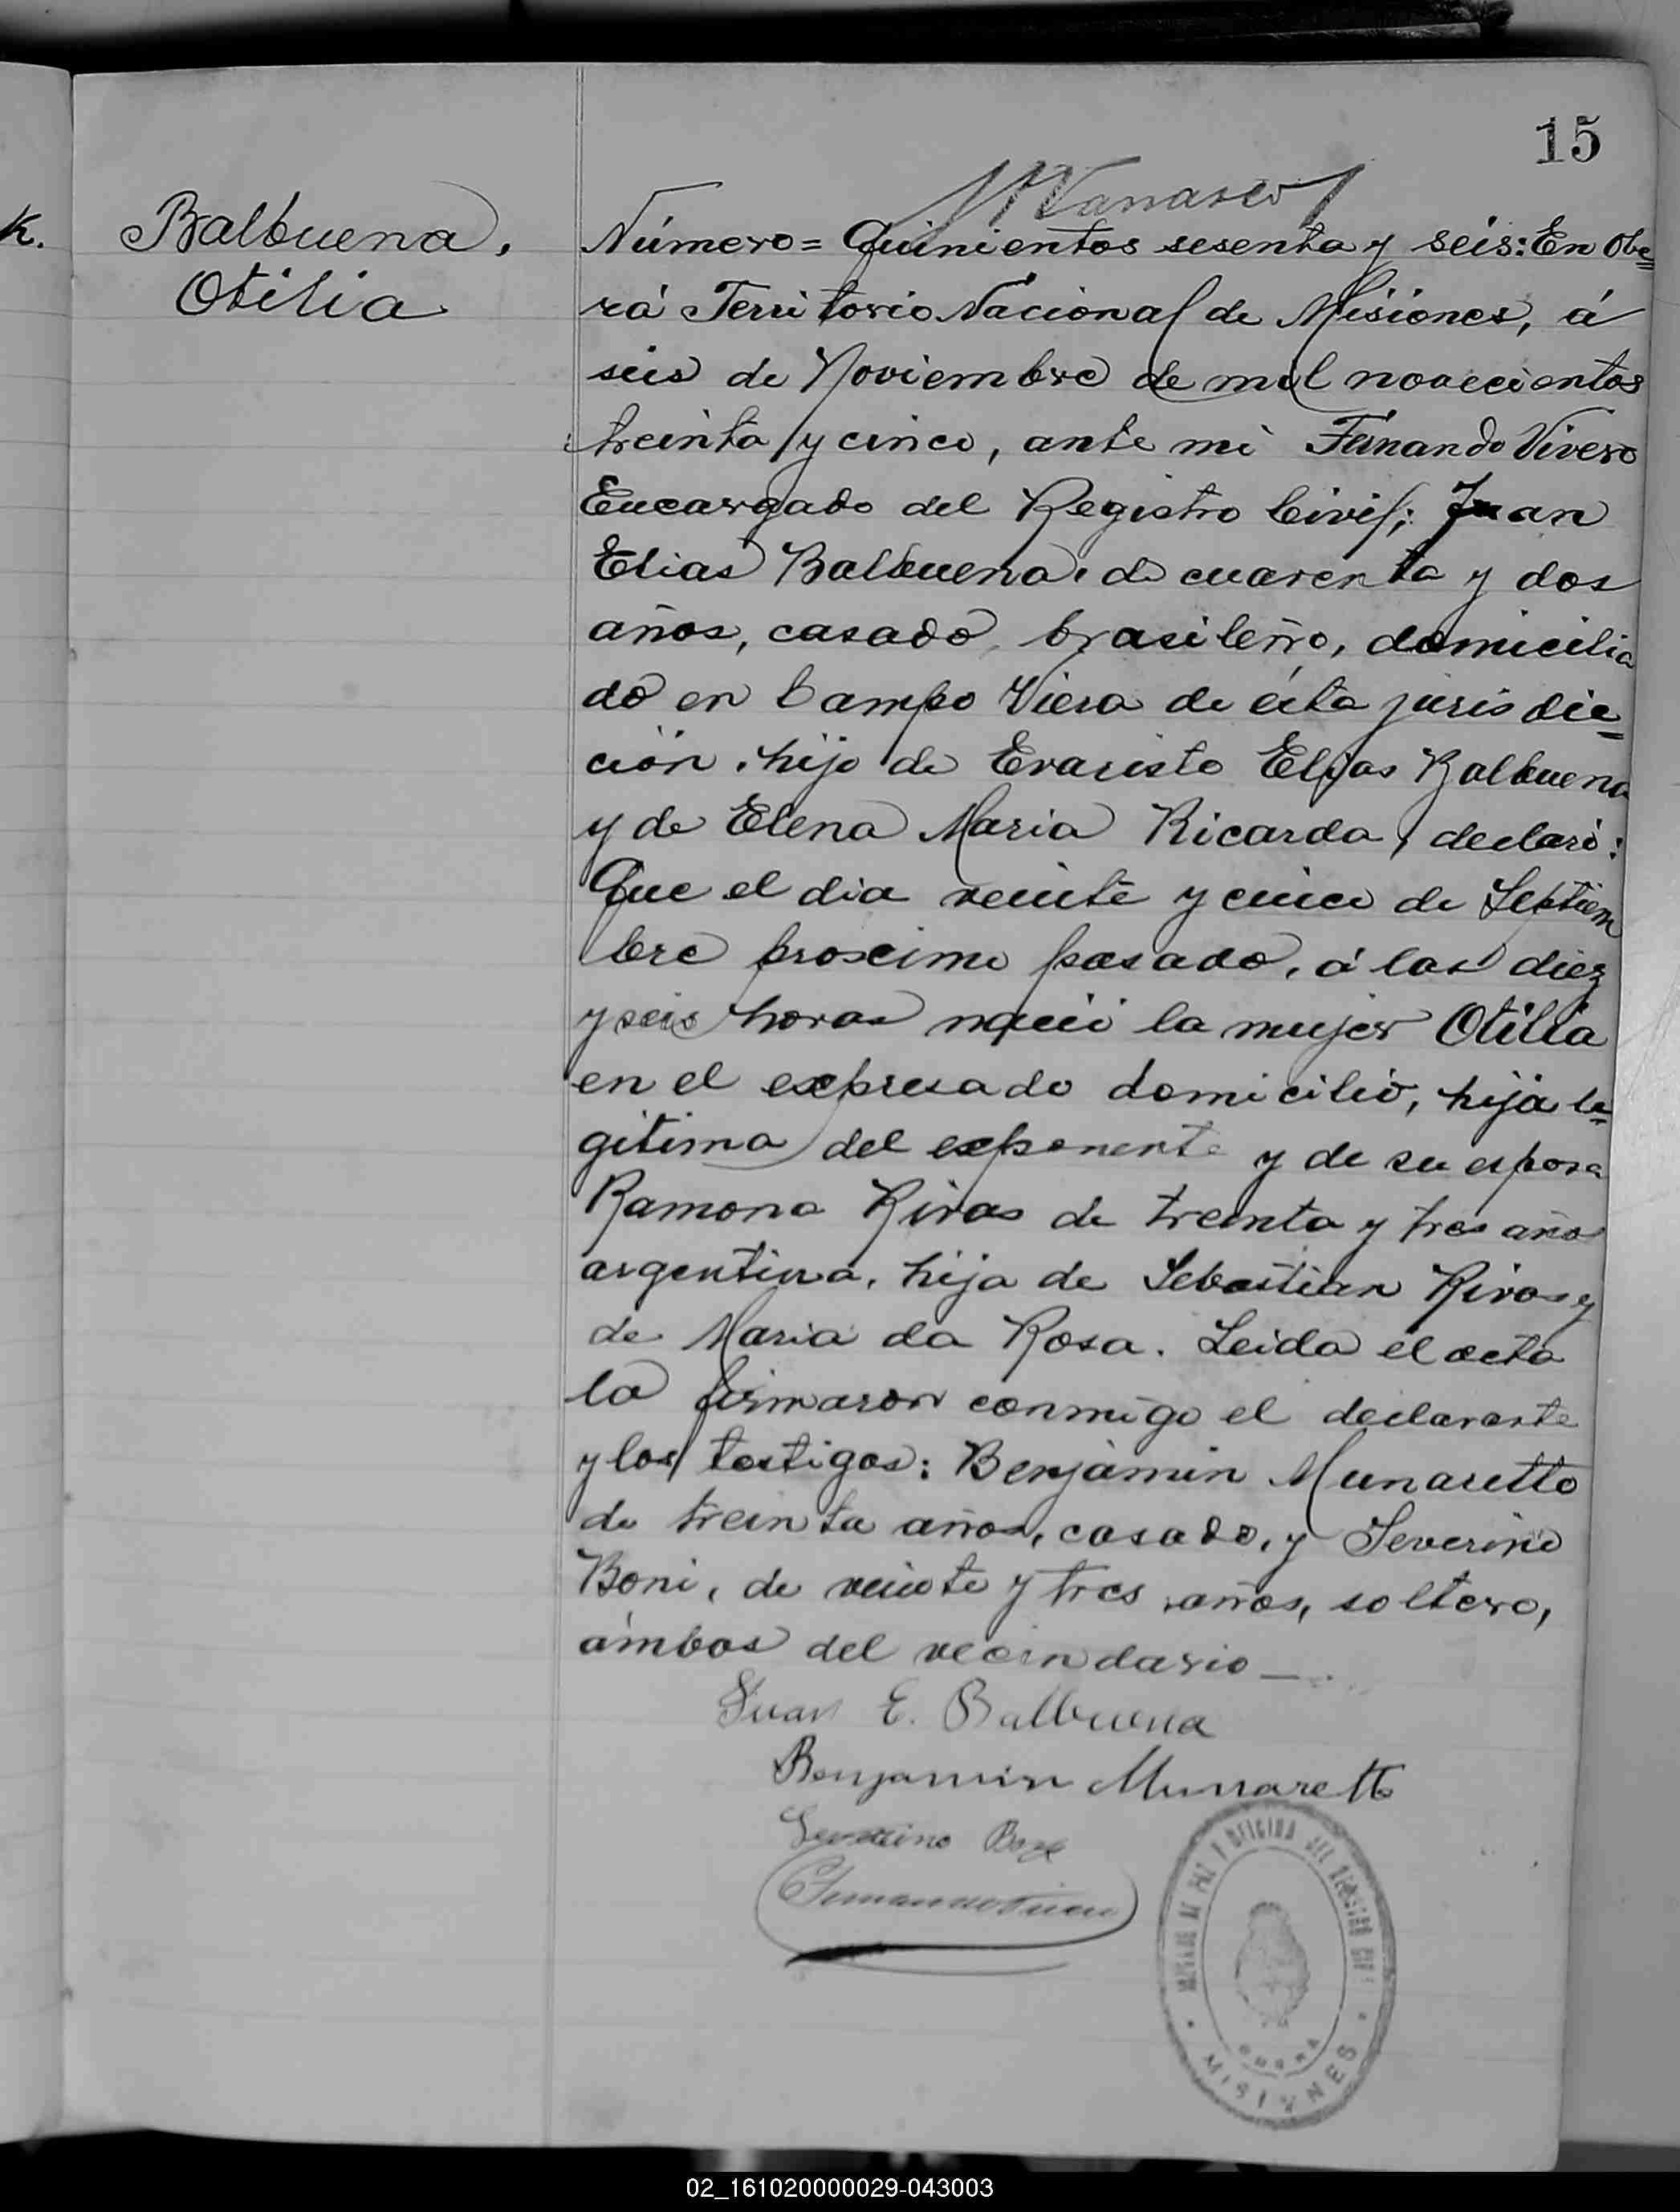 15
K.
Balbuena,
Otilia
Número= Quinientos sesenta y seis: En Obe=
rá Territorio Nacional de Misiones, á
seis de Noviembre de mil novecientos
treinta y cinco, ante mi Fernando Vivero
Encargado del Registro Civil; Juan
Elias Balbuena, de cuarenta y dos
años, casado, brasileño, domicilia
do en Campo Viera de ésta jurisdic=
ción, hijo de Evaristo Elias Balbuena
y de Elena Maria Ricarda, declaró:
Que el dia veinte y cinco de Septiem
bre proximo pasado, á las diez
y seis horas nació la mujer Otilia
en el expresado domicilio, hija le=
gitima del exponente y de su esposa
Ramona Rivas de treinta y tres años
argentina, hija de Sebastian Rivas y
de Maria da Rosa. Leida el acta
la firmaron conmigo el declarante
y los testigos: Benjamin Munaretto
de treinta años, casado, y Severino
Boni, de veinte y tres años, soltero,
ámbos del vecindario —.
Juan E. Balbuena
Benjamin Munaretto
Severino Boni
JUZGADO DE PAZ Y OFICINA DEL REGISTRO CIVIL
OBERA
MISIONES
02_161020000029-043003